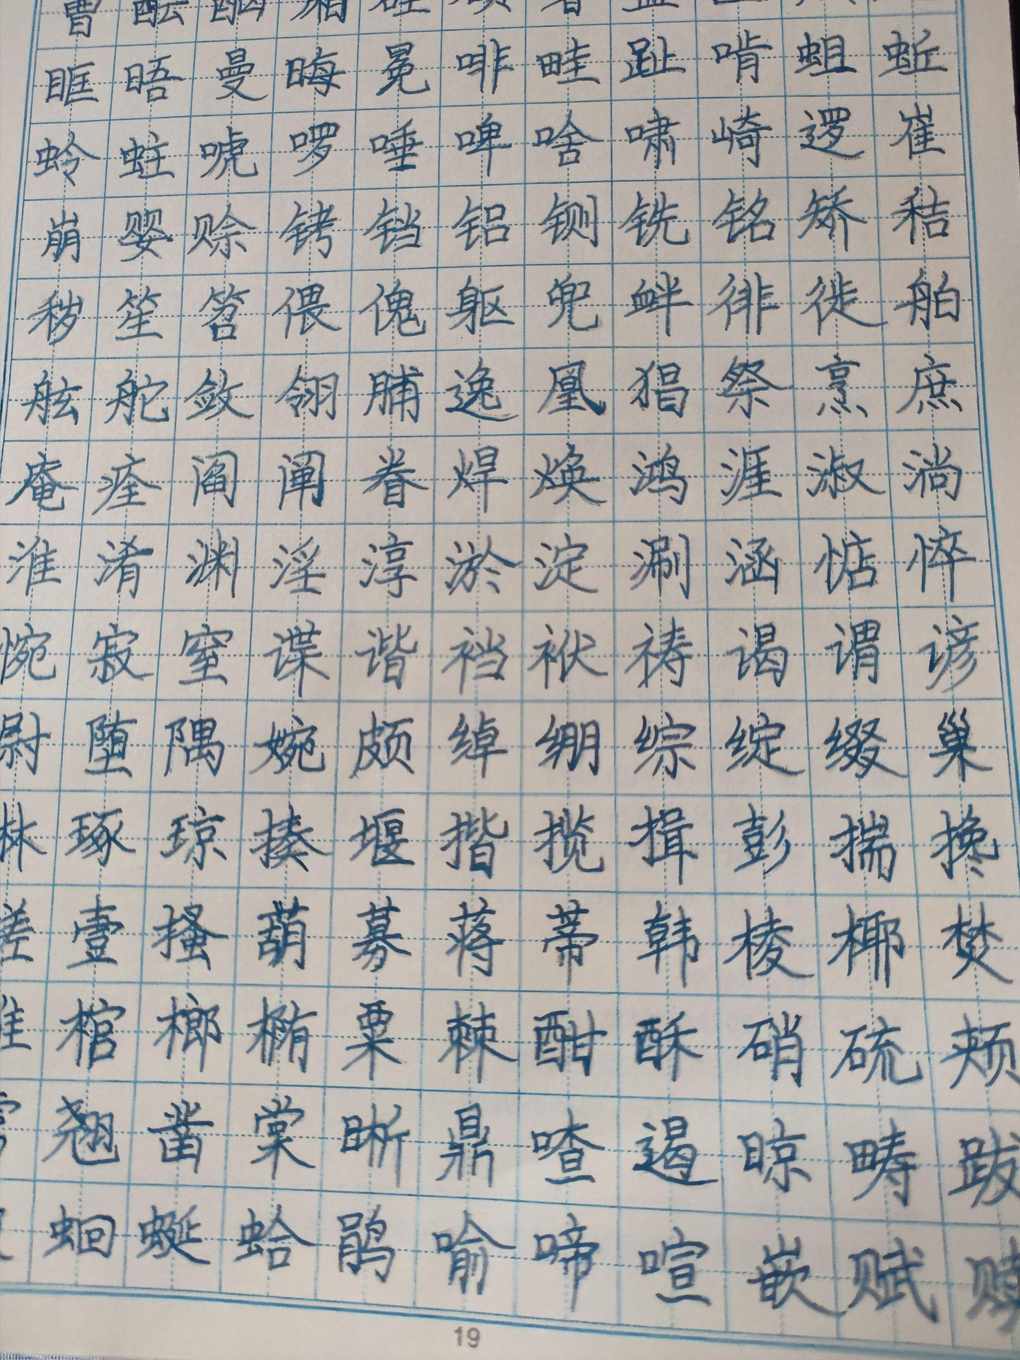 曹酝酗厢硅硕奢盔匾
眶晤曼晦冕啡畦趾啃蛆蚯
蛉蛀唬啰唾啤啥啸崎逻崔
崩婴赊铐铛铝铡铣铭矫秸
秽笙笤偎傀躯兜衅徘徙舶
舷舵敛翎脯逸凰猖祭烹庶
庵痊阎阐眷焊焕鸿涯淑淌
淮淆渊淫淳淤淀涮涵惦悴
惋寂窒谍谐裆袱祷谒谓谚
尉堕隅婉颇绰绷综绽缀巢
琳琢琼揍堰揩揽揖彭揣搀
搓壹搔葫募蒋蒂韩棱椰焚
椎棺榔椭粟棘酣酥硝硫颊
雳翘凿棠晰鼎喳遏晾畴跋
蛔蜒蛤鹃喻啼喧嵌赋赎
19